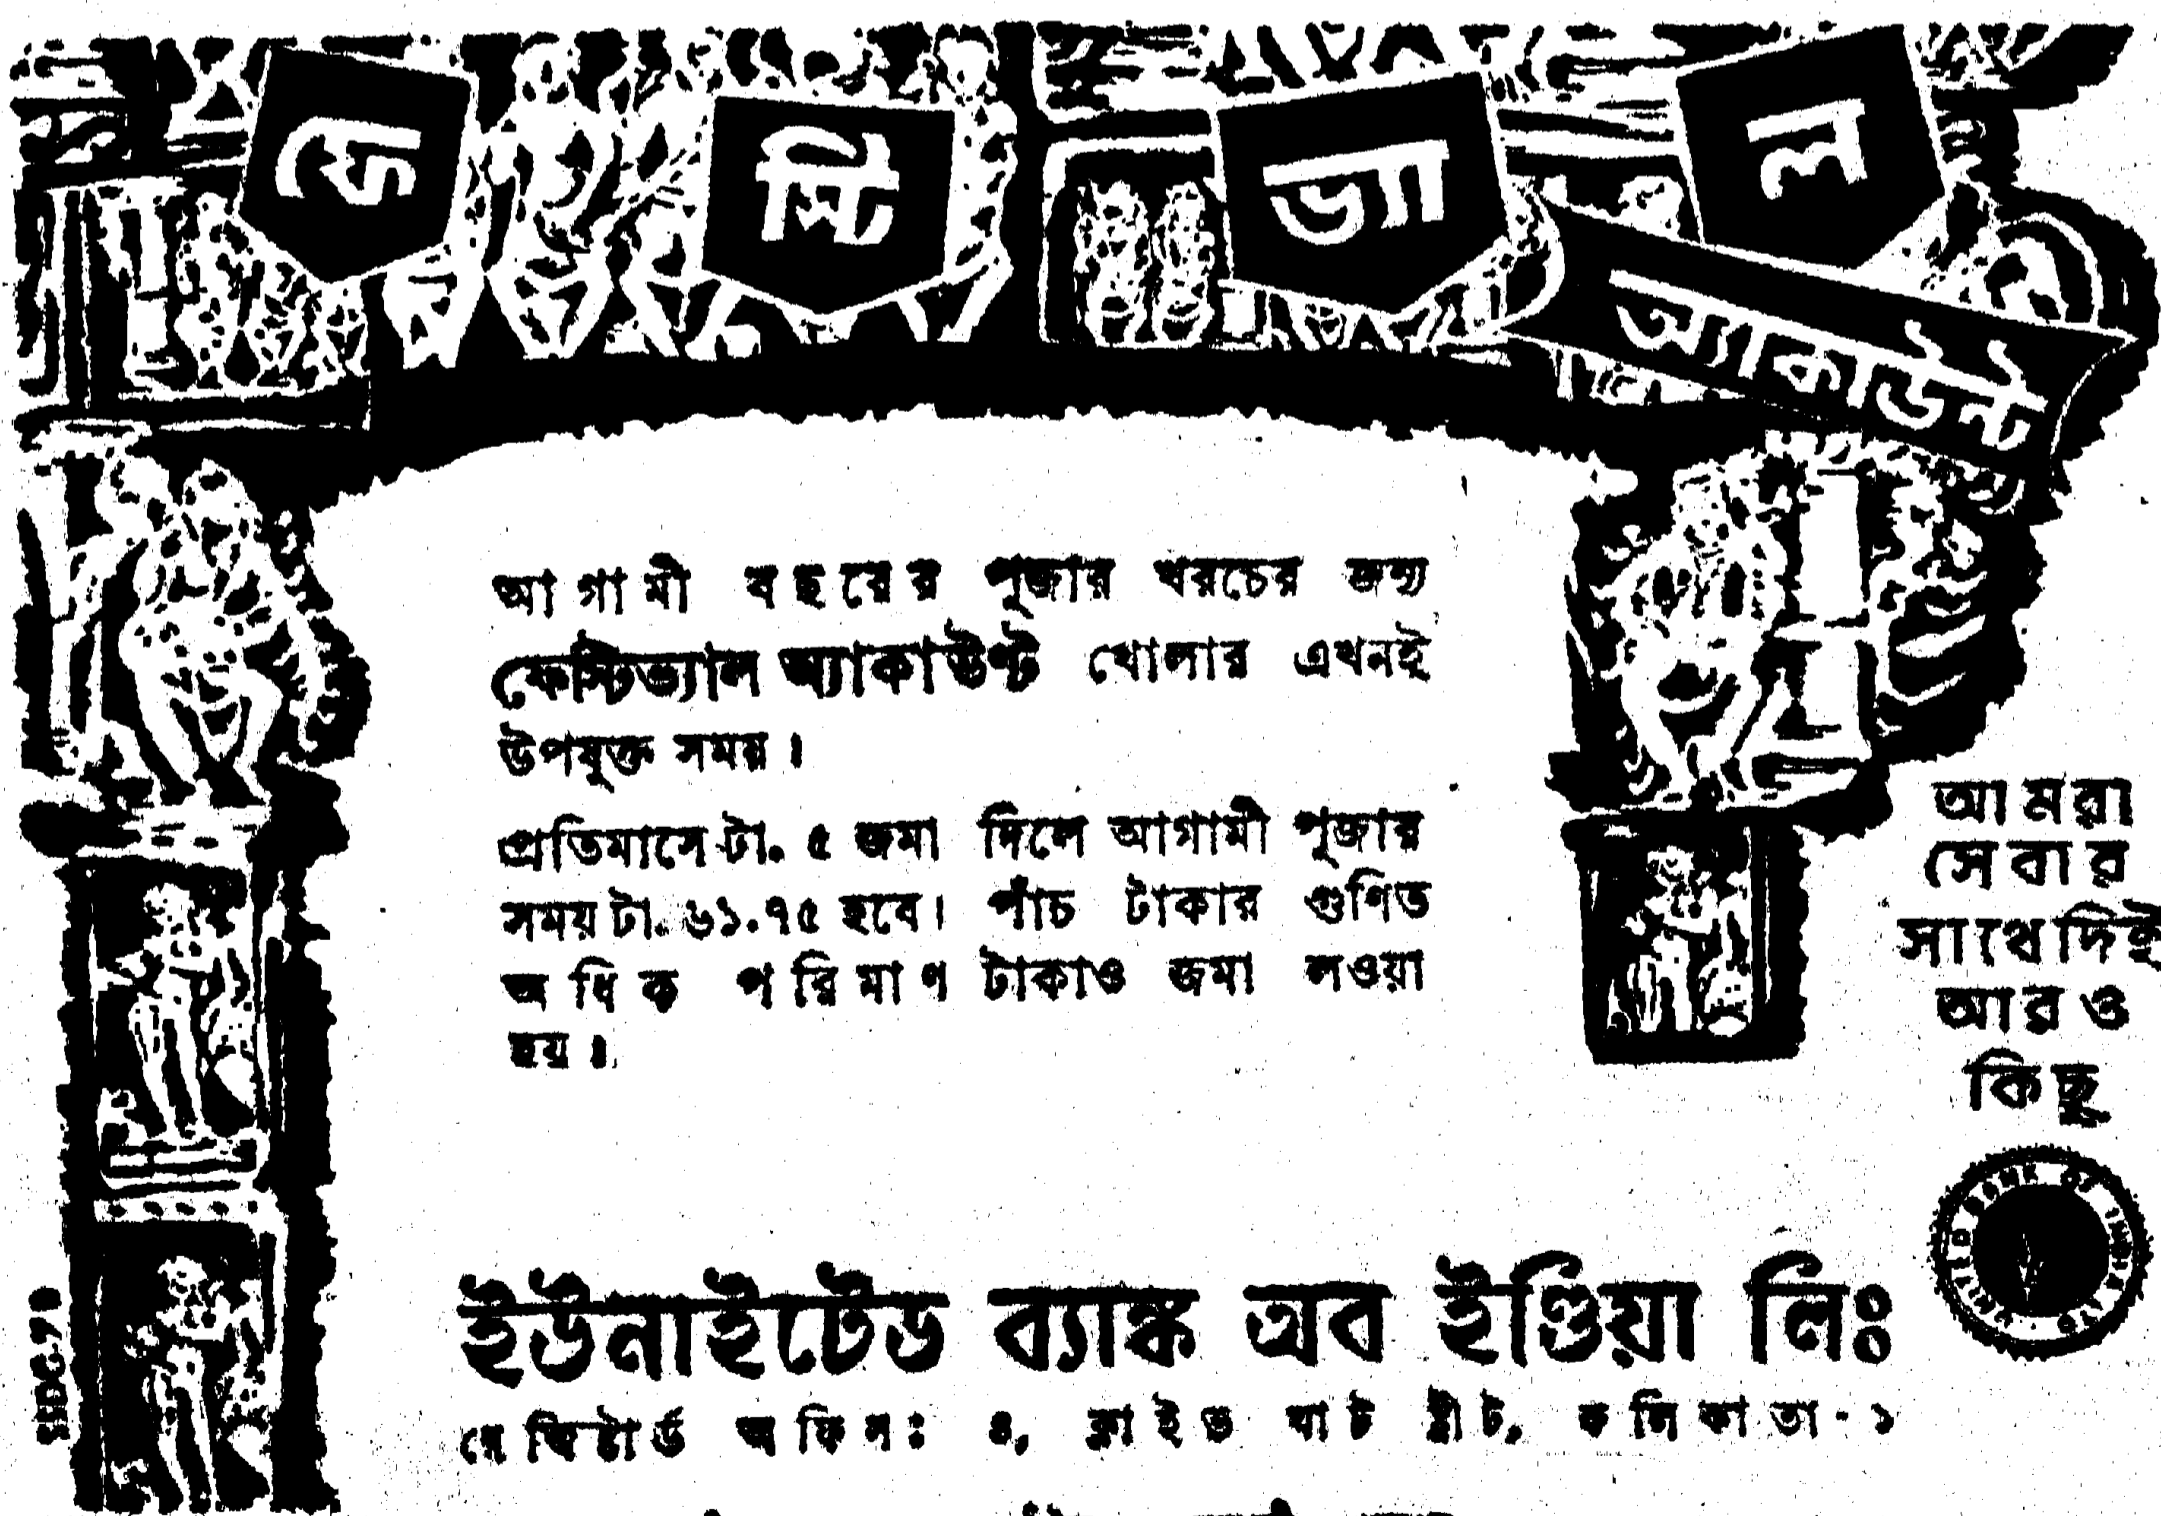 ফেস্টিভ্যাল
অ্যাকাউন্ট
আগামী বছরের পূজার খরচের জন্য
ফেস্টিভ্যাল অ্যাকাউণ্ট খোলার এখনই
উপযুক্ত সময়।
প্রতিমাসে টা. ৫ জমা দিলে আগামী পূজার
সময় টা. ৬১.৭৫ হবে। পাঁচ টাকার গুণিত
অধিক পরিমাণ টাকাও জমা লওয়া
হয়।
আমরা
সেবার
সাথে দিই
আরও
কিছু
UNITED BANK OF INDIA LTD
ইউনাইটেড ব্যাঙ্ক অব ইণ্ডিয়া লিঃ
রেজিষ্টার্ড অফিস: ৪, ক্লাইভ ঘাট ষ্ট্রীট, কলিকাতা-১